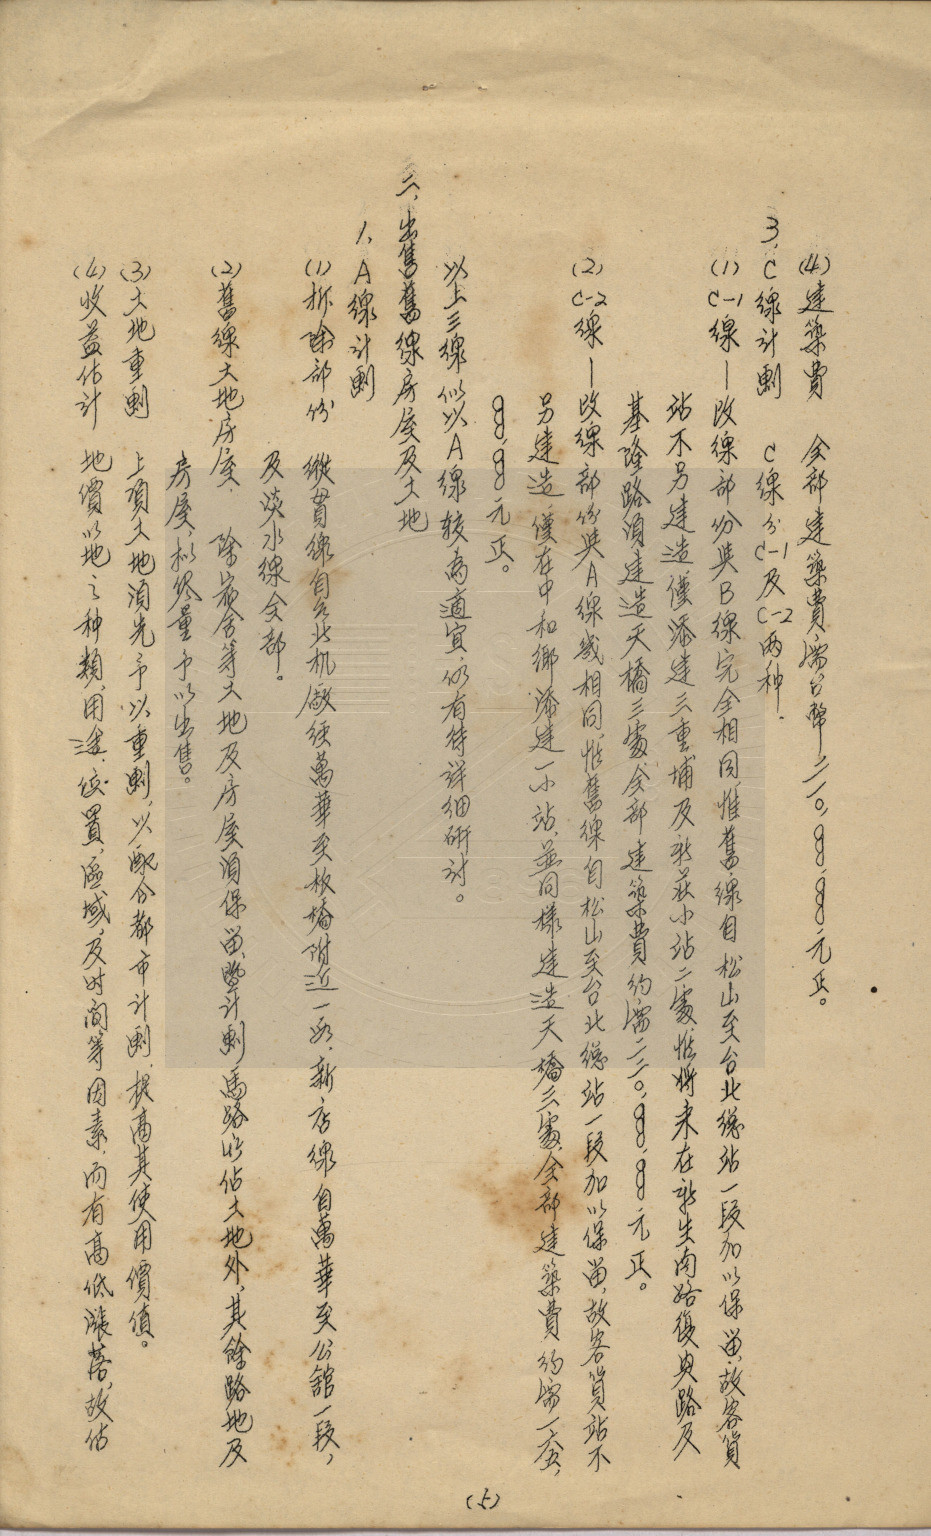 (4) 建築費　全部建築費需台幣二一〇,〇〇〇,〇〇〇元正。
3、C線計劃　C線分C-1及C-2兩种.
(1) C-1線—改線部份與B線完全相同,惟舊線自松山至台北總站一段加以保留,故客貨
站不另建造僅添建三重埔及新莊小站二處,惟將來在新生南路復興路及
基隆路須建造天橋三處全部建築費約需二二〇,〇〇〇,〇〇〇元正。
(2) C-2線—改線部份與A線或相同惟舊線自松山至台北總站一段加以保留,故客貨站不
另建造,僅在中和鄉添建一小站,並同樣建造天橋三處,全部建築費約需
〇〇〇,〇〇〇元正。
以上三線似以A線較為適宜,仍有待詳細研討。
二、出售舊線房屋及土地
1、A線計劃
(1) 拆除部份　縱貫線自台北机廠經萬華至板橋附近一段,新店線自萬華至公館一段,
及淡水線全部。
(2) 舊線土地房屋.　除宿舍等土地及房屋須保留,暨計劃馬路所佔土地外,其餘路地及
房屋,擬儘量予以出售。
(3) 土地重劃　上項土地須先予以重劃,以配合都市計劃,提高其使用價值。
(4) 收益估計　地價以地之种類,用途,位置,區域,及时間等因素,而有高低漲落,故估
(5)